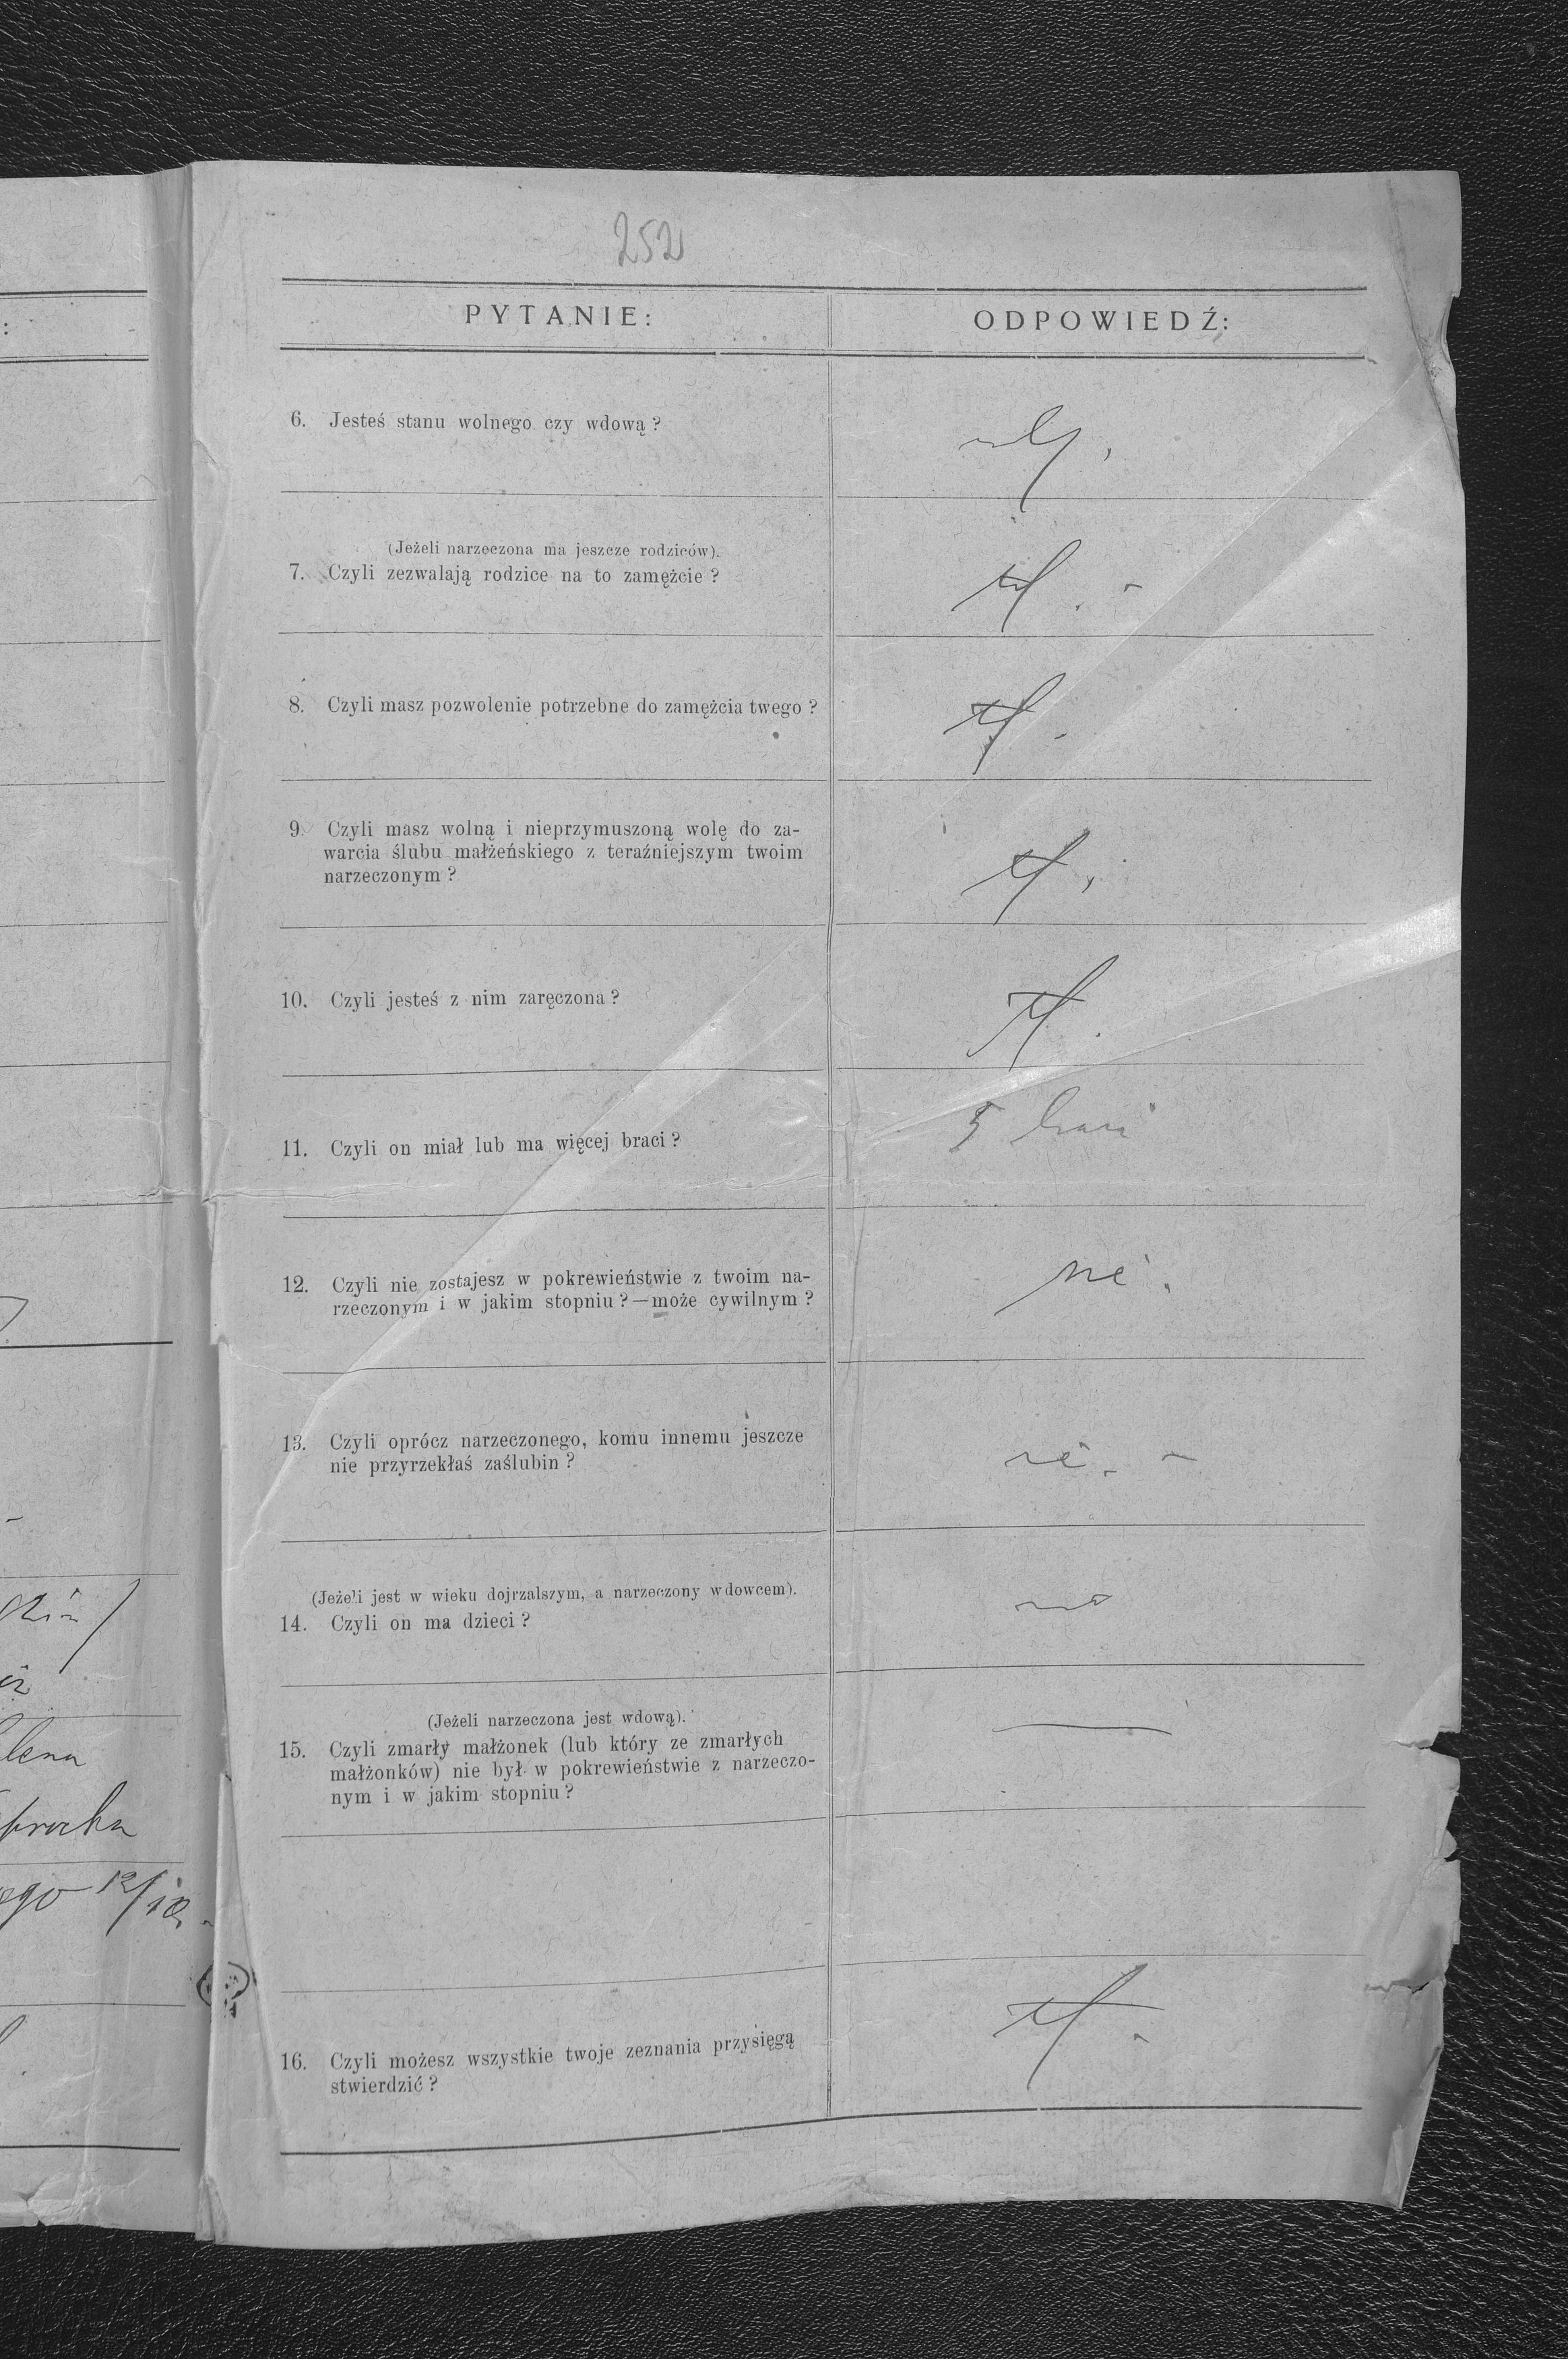 252
PYTANIE:
ODPOWIEDŹ:
6. Jesteś stanu wolnego czy wdową?
(Jeżeli narzeczona ma jeszcze rodziców).
7. Czyli zezwalają rodzice na to zamężcie?
8. Czyli masz pozwolenie potrzebne do zamężcia twego?
9. Czyli masz wolną i nieprzymuszoną wolę do za-
warcia ślubu małżeńskiego z teraźniejszym twoim
narzeczonym?
10. Czyli jesteś z nim zaręczona?
11. Czyli on miał lub ma więcej braci?
5 braci
12. Czyli nie zostajesz w pokrewieństwie z twoim na-
rzeczonym i w jakim stopniu?—może cywilnym?
nie.
13. Czyli oprócz narzeczonego, komu innemu jeszcze
nie przyrzekłaś zaślubin?
nie. -
(Jeżeli jest w wieku dojrzalszym, a narzeczony wdowcem).
14. Czyli on ma dzieci?
(Jeżeli narzeczona jest wdową).
15. Czyli zmarły małżonek (lub który ze zmarłych
małżonków) nie był w pokrewieństwie z narzeczo-
nym i w jakim stopniu?
16. Czyli możesz wszystkie twoje zeznania przysięgą
stwierdzić?
lena
procka
ego 12/12